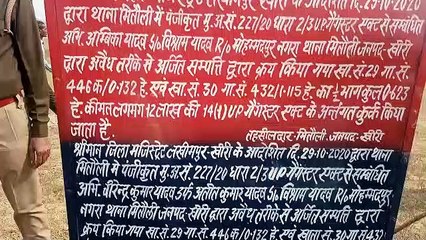 श्रीमान जिला मजिस्ट्रेट लखीमपुर-खीरी के आदेशित दि. 29-10-2020
द्वारा थाना मितौली में पंजीकृत मु.अ.सं. 227/20 धारा 2/3 UP गैंगस्टर एक्ट से सम्बंधित
अभि. अम्बिका यादव S/o विश्राम यादव R/o मोहम्मदपुर नगरा थाना मितौली जनपद-खीरी
द्वारा अवैध तरीके से अर्जित सम्पत्ति द्वारा क्रय किया गया खा.सं. 29 गा.सं.
446क/0·132 हे. एवं खा.सं. 30 गा.सं. 432/1·115 हे. का 1/3 भाग कुल 0·623
हे. कीमत लगभग 12 लाख की 14(1) UP गैंगस्टर एक्ट के अन्तर्गत कुर्क किया
जाता है.
तहसीलदार-मितौली, जनपद-खीरी
श्रीमान जिला मजिस्ट्रेट लखीमपुर-खीरी के आदेशित दि. 29-10-2020 द्वारा थाना
मितौली में पंजीकृत मु.अ.सं. 227/20 धारा 2/3 UP गैंगस्टर एक्ट से सम्बंधित
अभि. वीरेन्द्र कुमार यादव उर्फ अतीत कुमार यादव S/o विश्राम यादव R/o मोहम्मदपुर
नगरा थाना मितौली जनपद-खीरी द्वारा अवैध तरीके से अर्जित सम्पत्ति द्वारा
क्रय किया गया खा.सं. 29 गा.सं. 446क/0·132 हे. एवं खाता सं. 30 गा.सं. 432/